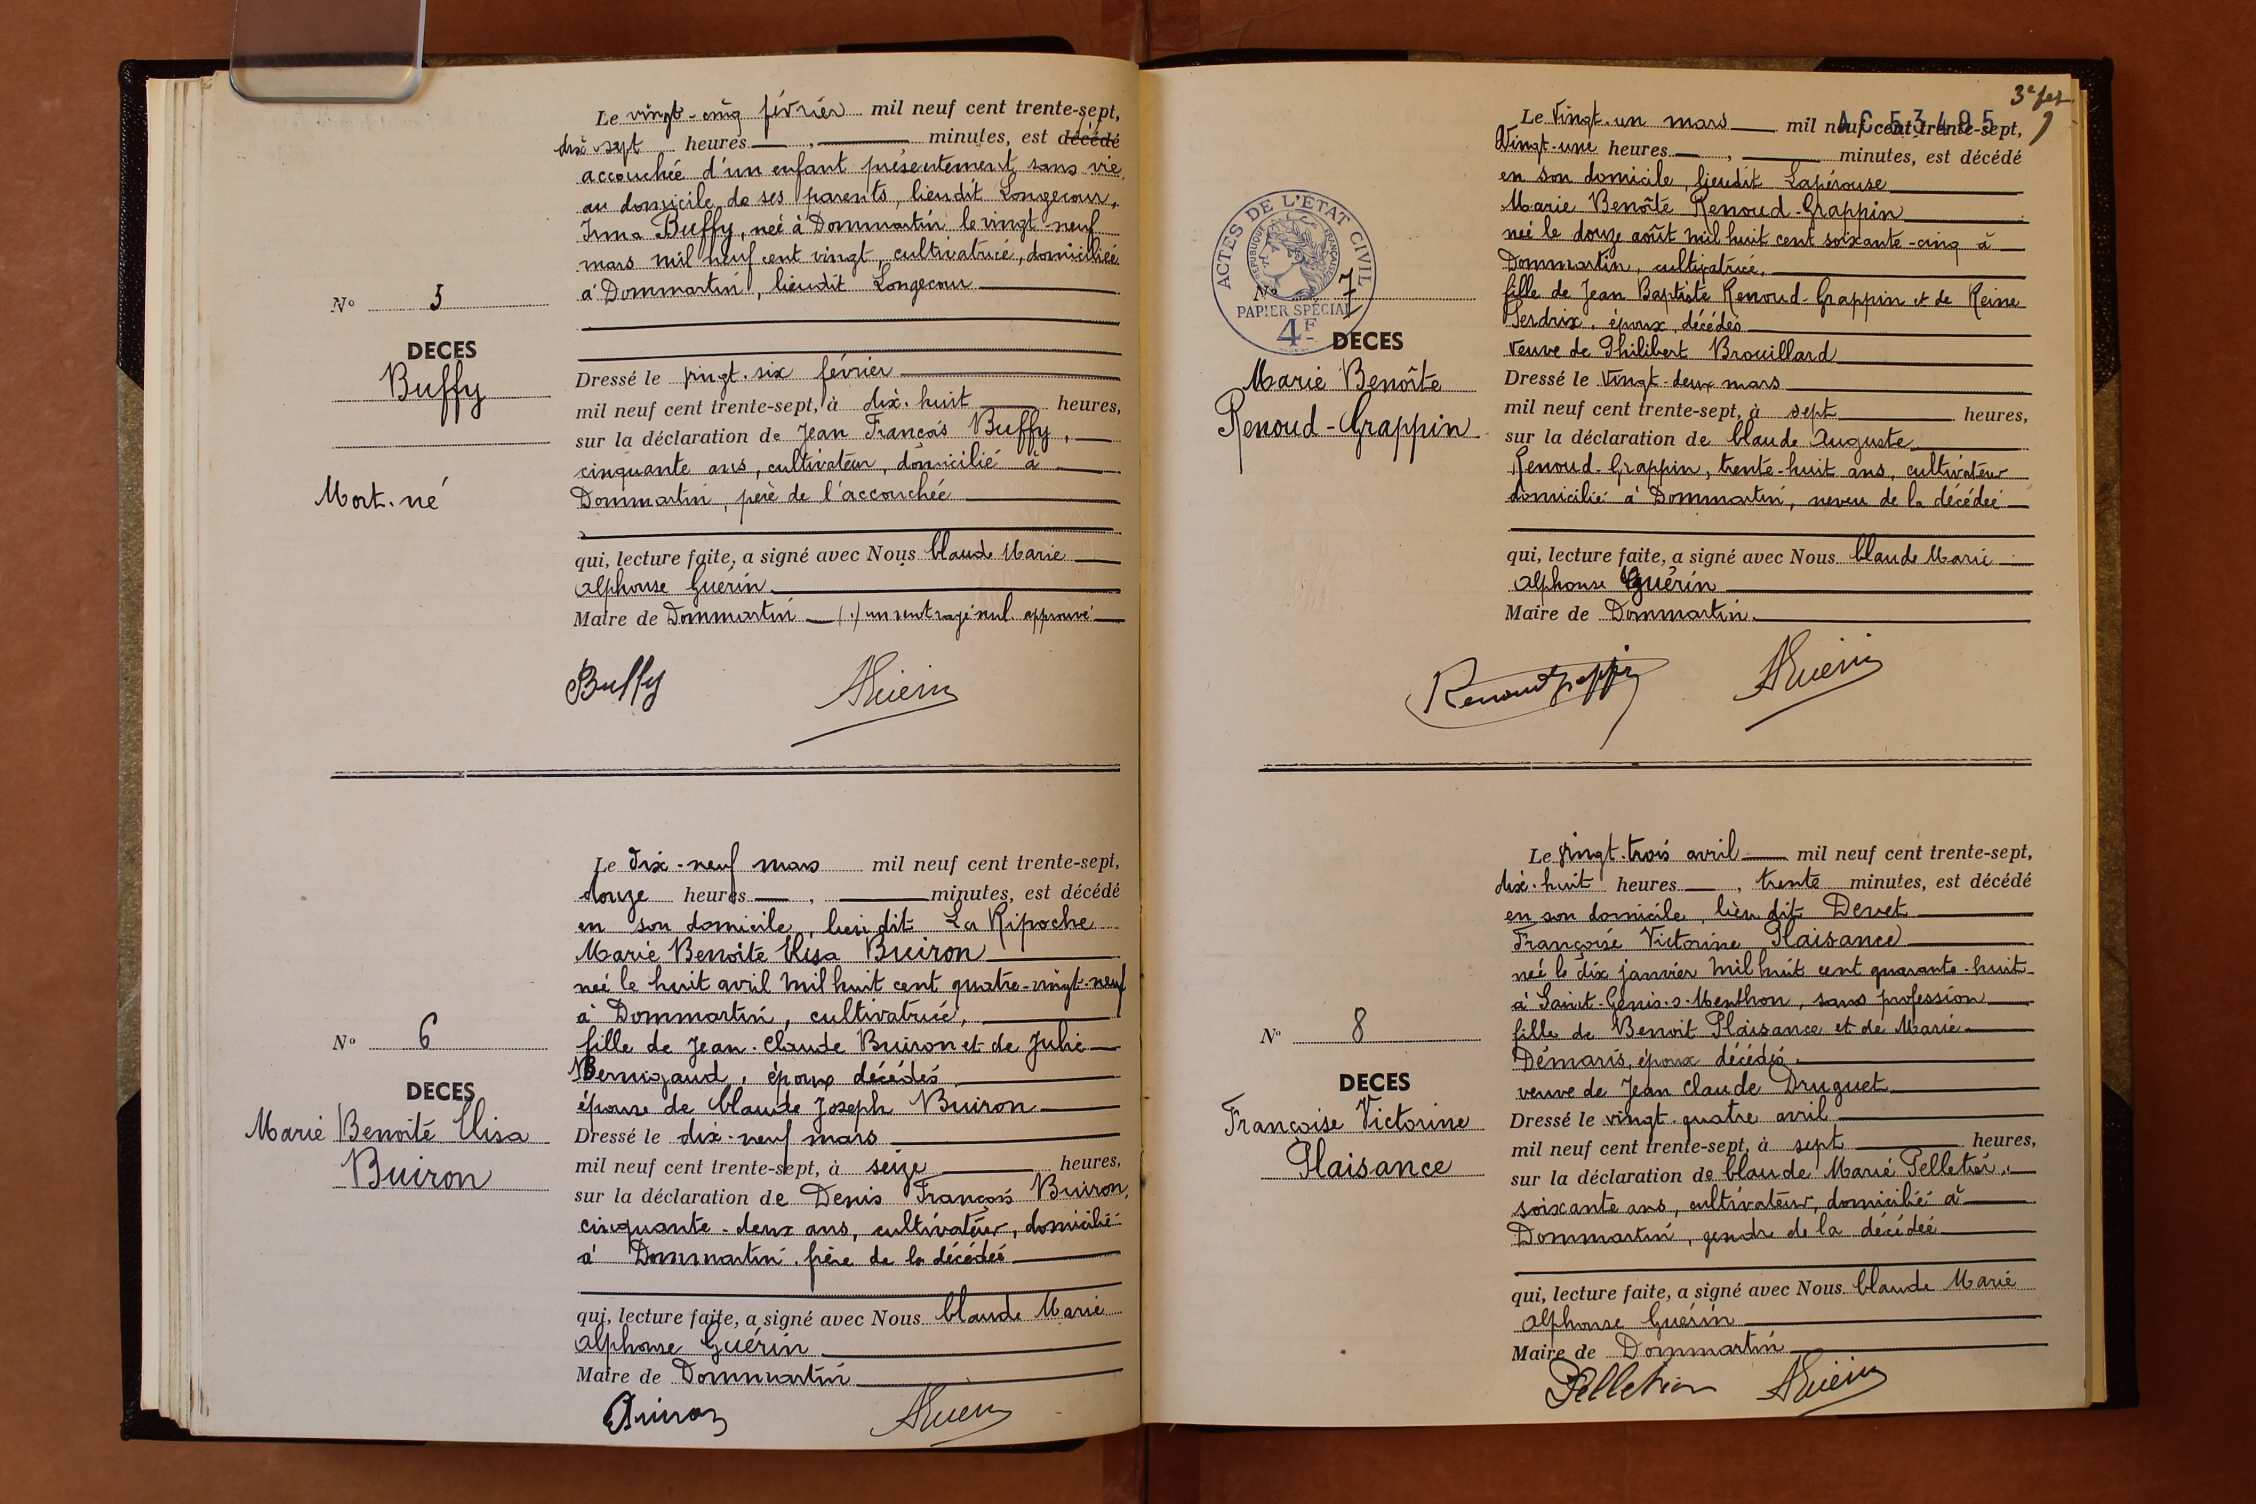 Le vingt-cinq février mil neuf cent trente-sept,
dix-sept heures , minutes, est décédé
accouchée d'un enfant présentement sans vie
au domicile de ses parents, lieudit Longecour,
Irma Buffy, née à Dommartin le vingt-neuf
mars mil neuf cent vingt, cultivatrice, domiciliée
à Dommartin, lieudit Longecour
No 5
DECES
Buffy
Mort-né
Dressé le vingt-six février
mil neuf cent trente-sept, à dix-huit heures,
sur la déclaration de Jean François Buffy,
cinquante ans, cultivateur, domicilié à
Dommartin, père de l'accouchée
qui, lecture faite, a signé avec Nous Claude Marie
Alphonse Guérin
Maire de Dommartin (.) un mot rayé nul approuvé
Buffy AGuérin
Le dix-neuf mars mil neuf cent trente-sept,
douze heures , minutes, est décédé
en son domicile, lieu dit La Ripoche
Marie Benoîte Elisa Buiron
née le huit avril mil huit cent quatre-vingt-neuf
à Dommartin, cultivatrice,
fille de Jean-Claude Buiron et de Julie
Bernigaud, époux décédés
épouse de Claude Joseph Buiron
No 6
DECES
Marie Benoîte Elisa
Buiron
Dressé le dix-neuf mars
mil neuf cent trente-sept, à seize heures,
sur la déclaration de Denis François Buiron,
cinquante-deux ans, cultivateur, domicilié
à Dommartin, frère de la décédée
qui, lecture faite, a signé avec Nous Claude Marie
Alphonse Guérin
Maire de Dommartin
Buiron AGuérin
3e fet
AC 53495
Le vingt-un mars mil neuf cent trente-sept,
Vingt-une heures , minutes, est décédé
en son domicile, lieudit Lapérouse
Marie Benoîte Renoud-Grappin
née le douze août mil huit cent soixante-cinq à
Dommartin, cultivatrice,
fille de Jean Baptiste Renoud-Grappin et de Reine
Perdrix, époux décédés
veuve de Philibert Brouillard
ACTES DE L'ETAT CIVIL
REPUBLIQUE FRANÇAISE
PAPIER SPECIAL
4F
No 7
DECES
Marie Benoîte
Renoud-Grappin
Dressé le vingt-deux mars
mil neuf cent trente-sept, à sept heures,
sur la déclaration de Claude Auguste
Renoud-Grappin, trente-huit ans, cultivateur
domicilié à Dommartin, neveu de la décédée
qui, lecture faite, a signé avec Nous Claude Marie
Alphonse Guérin
Maire de Dommartin.
Renoud grappin AGuérin
Le vingt-trois avril mil neuf cent trente-sept,
dix-huit heures , trente minutes, est décédé
en son domicile, lieu dit Devet
Françoise Victorine Plaisance
née le dix janvier mil huit cent quarante-huit
à Saint-Genis-s-Menthon, sans profession
fille de Benoit Plaisance et de Marie
Démaris, époux décédés.
veuve de Jean Claude Druguet
No 8
DECES
Françoise Victorine
Plaisance
Dressé le vingt-quatre avril
mil neuf cent trente-sept, à sept heures,
sur la déclaration de Claude Marie Pelletier,
soixante ans, cultivateur, domicilié à
Dommartin, gendre de la décédée
qui, lecture faite, a signé avec Nous Claude Marie
Alphonse Guérin
Maire de Dommartin
Pelletier AGuérin